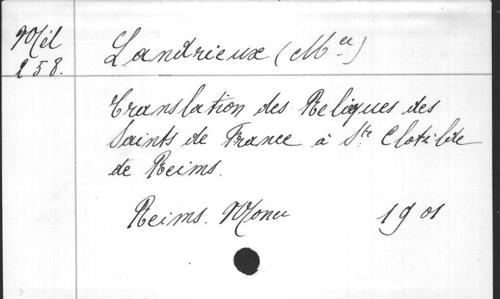 Mél Landrieux (Mce)
258.
Translation des Reliques des
Saints de France à Ste Clotilde
de Reims.
Reims. Monce 1901